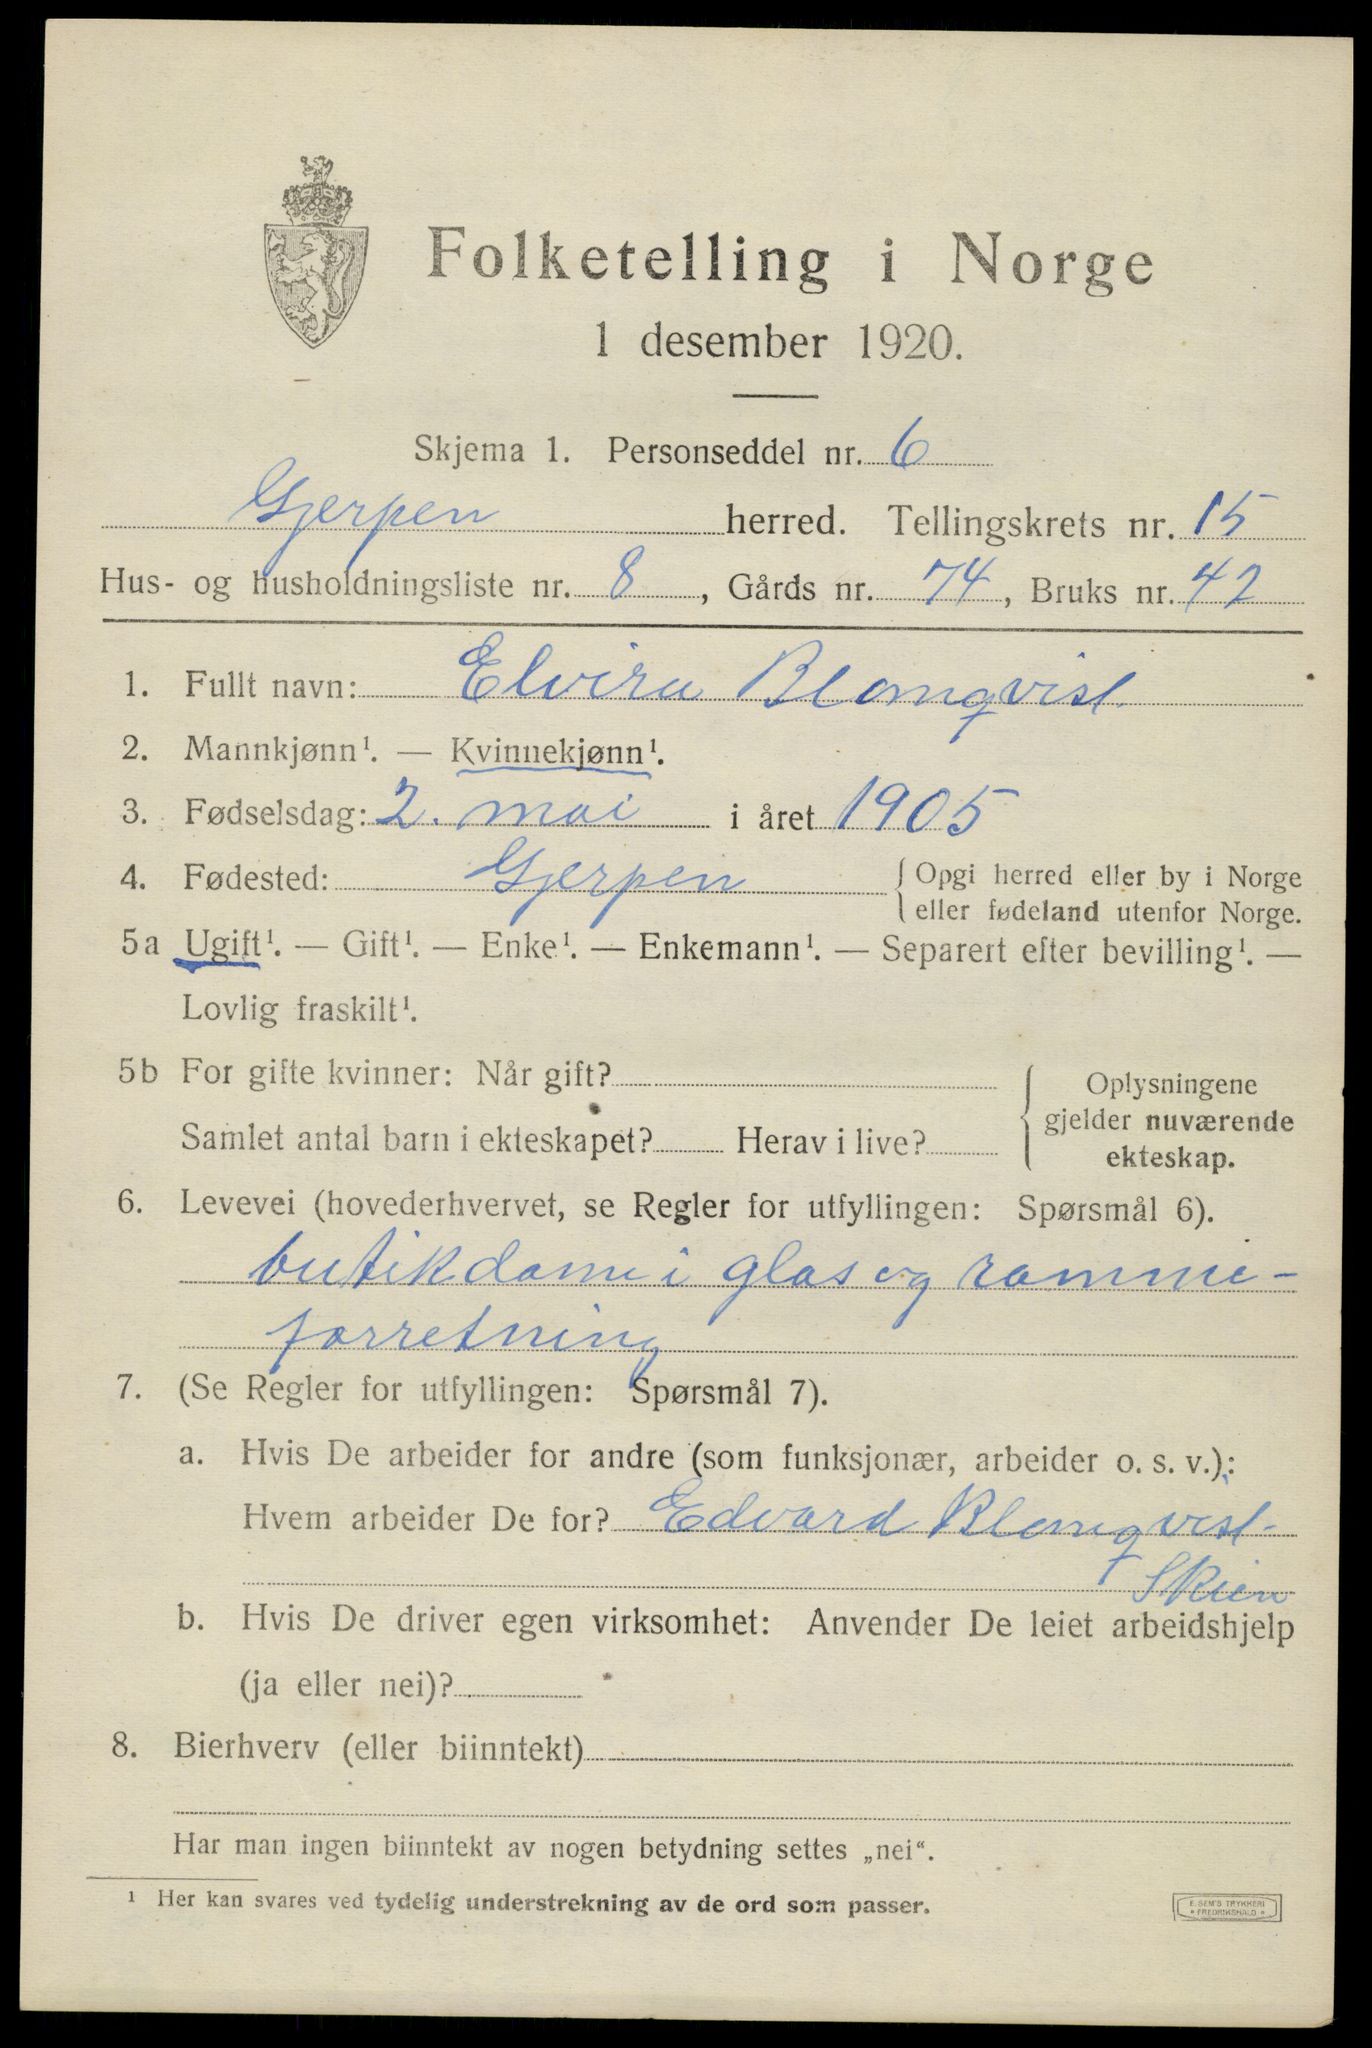 Folketelling i Norge
1 desember 1920.
Skjema 1. Personseddel nr. 6
Gjerpen herred. Tellingskrets nr. 15
Hus- og husholdningsliste nr. 8, Gårds nr. 74, Bruks nr. 42
1. Fullt navn: Elvira Blomqvist.
2. Mannkjønn¹. — Kvinnekjønn¹.
3. Fødselsdag: 2. mai i året 1905
4. Fødested: Gjerpen { Opgi herred eller by i Norge
eller fødeland utenfor Norge.
5a Ugift¹. — Gift¹. — Enke¹. — Enkemann¹. — Separert efter bevilling¹. —
Lovlig fraskilt¹.
5b For gifte kvinner: Når gift?
Samlet antal barn i ekteskapet? Herav i live?
{ Oplysningene
gjelder nuværende
ekteskap.
6. Levevei (hovederhvervet, se Regler for utfyllingen: Spørsmål 6).
butikdame i glas og ramme-
forretning
7. (Se Regler for utfyllingen: Spørsmål 7).
a. Hvis De arbeider for andre (som funksjonær, arbeider o. s. v.):
Hvem arbeider De for? Edvard Blomqvist.
Skien
b. Hvis De driver egen virksomhet: Anvender De leiet arbeidshjelp
(ja eller nei)?
8. Bierhverv (eller biinntekt)
Har man ingen biinntekt av nogen betydning settes „nei“.
¹ Her kan svares ved tydelig understrekning av de ord som passer.
E. SEM'S TRYKKERI
* FREDRIKSHALD *